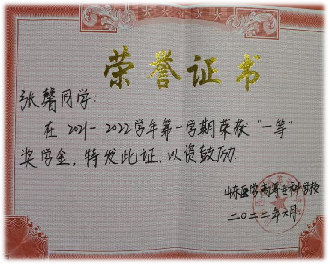 荣誉证书
张馨同学:
在2021-2022学年第一学期荣获“一等”
奖学金,特发此证,以资鼓励.
山东医学高等专科学校
二〇二二年六月